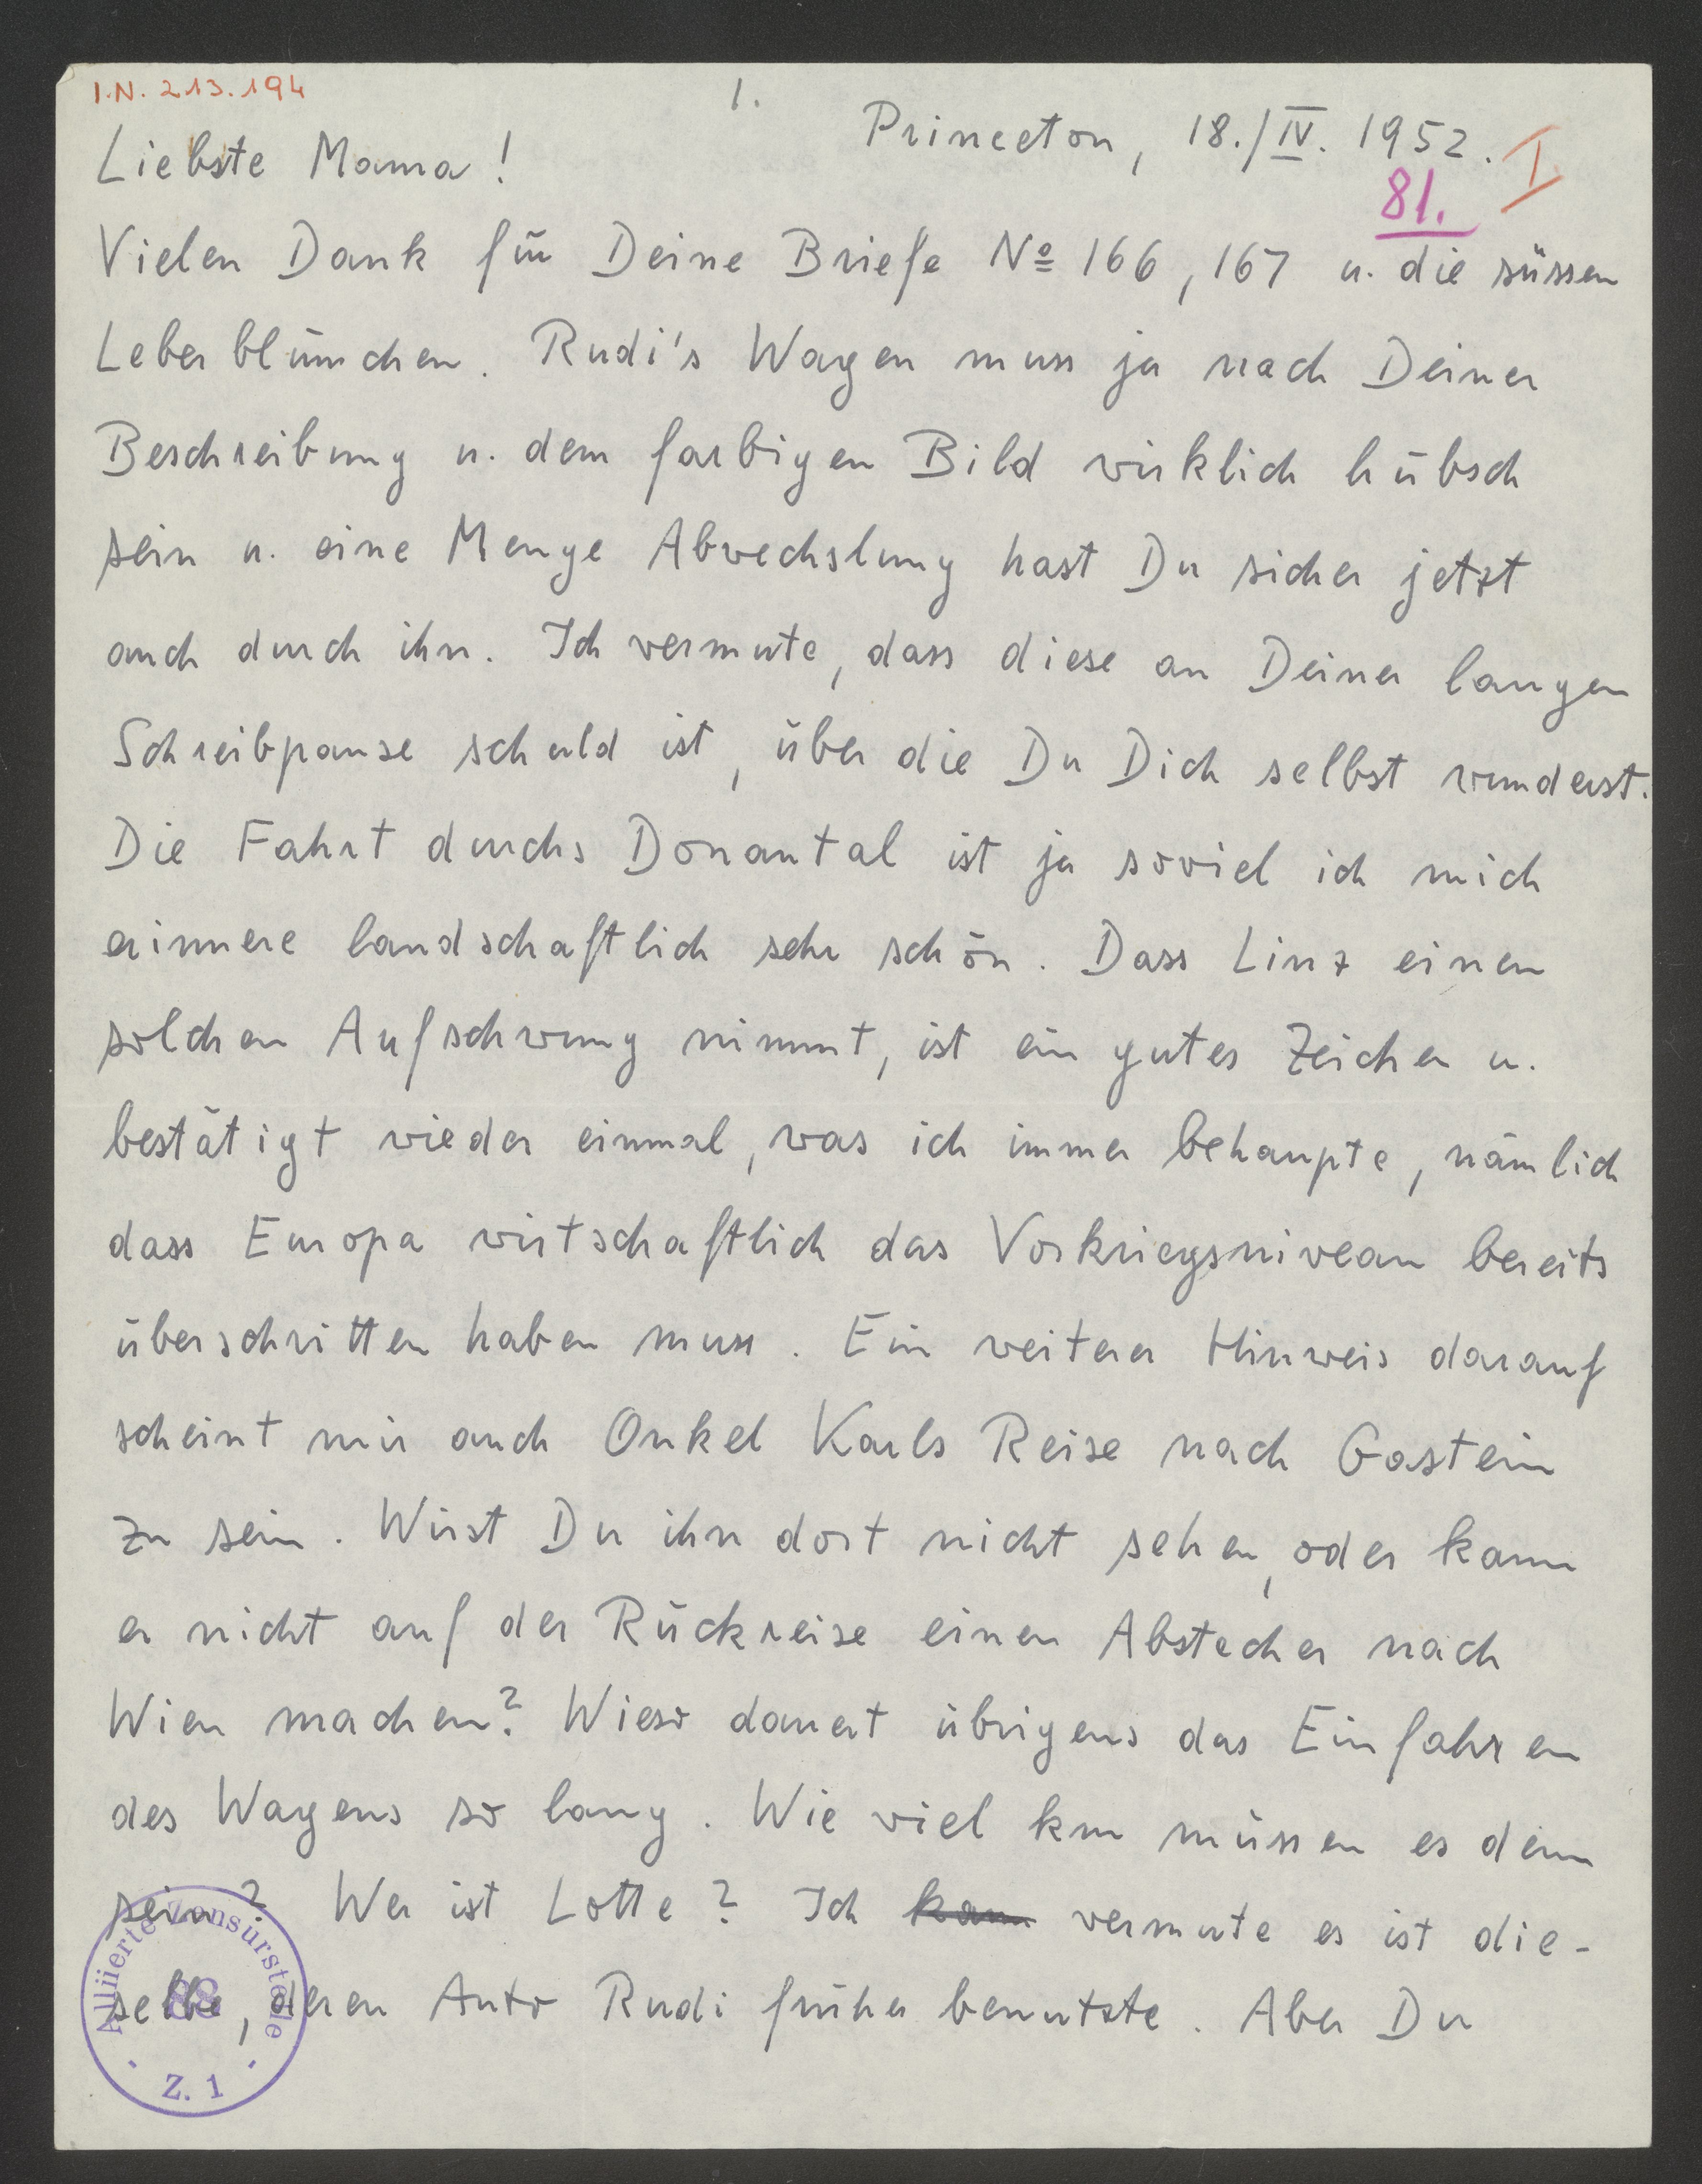 I.N. 213.194
1.
Princeton, 18./IV. 1952.
I
81.
Liebste Mama!
Vielen Dank für Deine Briefe Nº 166, 167 u. die süssen
Leberblümchen. Rudi's Wagen muss ja nach Deiner
Beschreibung u. dem farbigen Bild wirklich hübsch
sein u. eine Menge Abwechslung hast Du sicher jetzt
auch durch ihn. Ich vermute, dass diese an Deiner langen
Schreibpause schuld ist, über die Du Dich selbst wunderst.
Die Fahrt durchs Donautal ist ja soviel ich mich
erinnere landschaftlich sehr schön. Dass Linz einen
solchen Aufschwung nimmt, ist ein gutes Zeichen u.
bestätigt wieder einmal, was ich immer behaupte, nämlich
dass Europa wirtschaftlich das Vorkriegsniveau bereits
überschritten haben muss. Ein weiterer Hinweis darauf
scheint mir auch Onkel Karls Reise nach Gastein
zu sein. Wirst Du ihn dort nicht sehen, oder kann
er nicht auf der Rückreise einen Abstecher nach
Wien machen? Wieso dauert übrigens das Einfahren
des Wagens so lang. Wie viel km müssen es denn
sein? Wer ist Lotte? Ich kann vermute es ist die-
selbe, deren Auto Rudi früher benutzte. Aber Du
Alliierte Zensurstelle
88
· Z. 1 ·